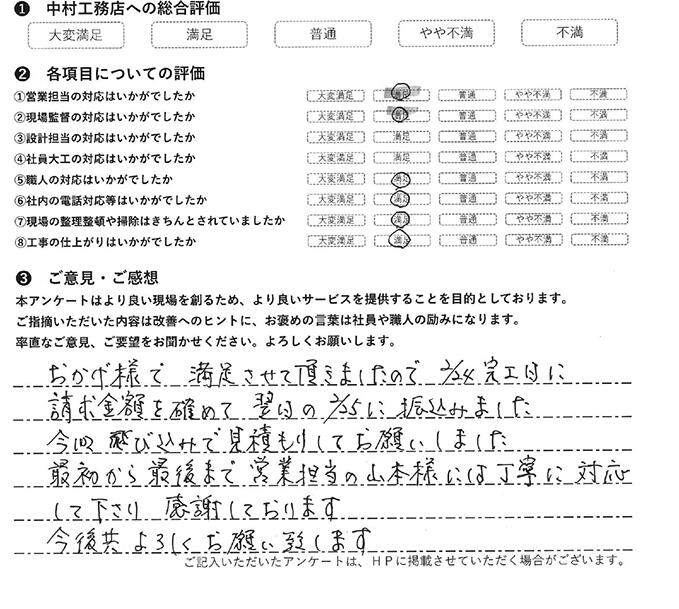 ❶ 中村工務店への総合評価
大変満足 満足 普通 やや不満 不満
❷ 各項目についての評価
①営業担当の対応はいかがでしたか 大変満足 満足 普通 やや不満 不満
②現場監督の対応はいかがでしたか 大変満足 満足 普通 やや不満 不満
③設計担当の対応はいかがでしたか 大変満足 満足 普通 やや不満 不満
④社員大工の対応はいかがでしたか 大変満足 満足 普通 やや不満 不満
⑤職人の対応はいかがでしたか 大変満足 満足 普通 やや不満 不満
⑥社内の電話対応等はいかがでしたか 大変満足 満足 普通 やや不満 不満
⑦現場の整理整頓や掃除はきちんとされていましたか 大変満足 満足 普通 やや不満 不満
⑧工事の仕上がりはいかがでしたか 大変満足 満足 普通 やや不満 不満
❸ ご意見・ご感想
本アンケートはより良い現場を創るため、より良いサービスを提供することを目的としております。
ご指摘いただいた内容は改善へのヒントに、お褒めの言葉は社員や職人の励みになります。
率直なご意見、ご要望をお聞かせください。よろしくお願いします。
おかげ様で 満足させて頂きましたので 2/24完工日に
請求金額を確めて 翌日の 2/25に 振込みました
今回 飛び込みで見積もりしてお願いしました
最初から最後まで営業担当の山本様には丁寧に対応
して下さり 感謝しております
今後共よろしくお願い致します
ご記入いただいたアンケートは、HPに掲載させていただく場合がございます。